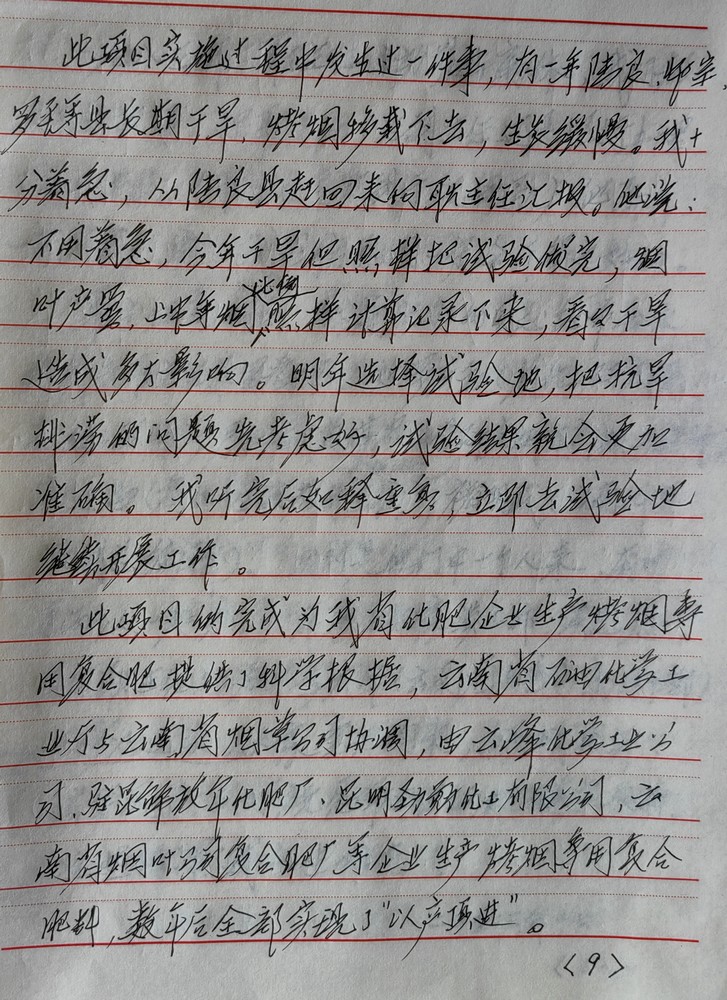 此项目实施过程中发生过一件事，有一年陆良、师宗、
罗平等县长期干旱，烤烟移栽下去，生长缓慢。我十
分着急，从陆良县赶回来向耿主任汇报。他说：
不用着急，今年干旱但照样把试验做完，烟
叶产量、上中等烟比例照样计算记录下来，看看干旱
造成多大影响。明年选择试验地，把抗旱
排涝的问题先考虑好，试验结果就会更加
准确。我听完后如释重负，立即去试验地
继续开展工作。
此项目的完成为我省化肥企业生产烤烟专
用复合肥提供了科学根据，云南省石油化学工
业厅与云南省烟草公司协调，由云峰化学工业公
司、驻昆解放军化肥厂、昆明劲勋化工有限公司、云
南省烟叶公司复合肥厂等企业生产烤烟专用复合
肥料，数年后全部实现了“以产顶进”。
〈9〉